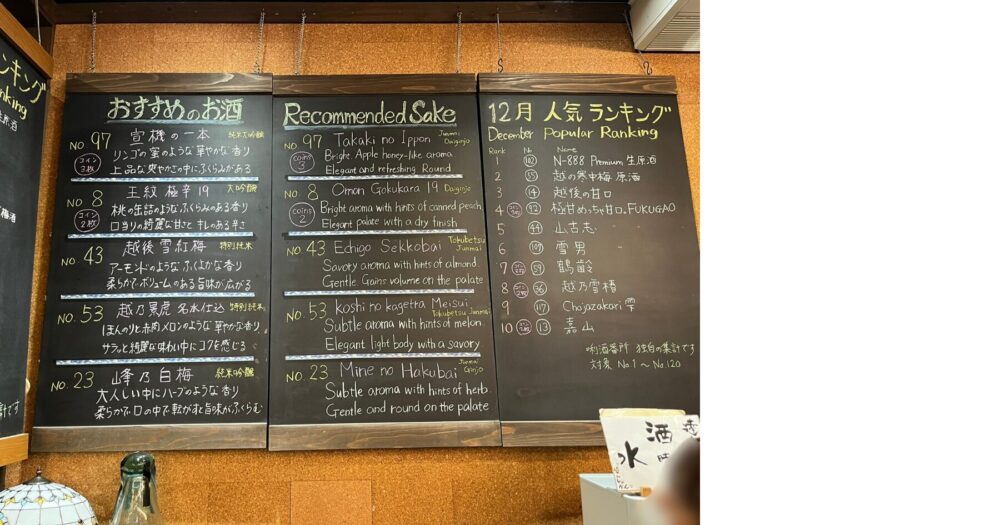 ンキング
nking
おすすめのお酒
NO 97 宣機の一本 純米大吟醸
コイン3枚 リンゴの蜜のような華やかな香り
上品な爽やかさの中にふくらみがある
NO 8 王紋 極辛19 大吟醸
コイン2枚 桃の缶詰のようなふくらみのある香り
口当りの綺麗な甘さと キレのある辛さ
NO. 43 越後 雪紅梅 特別純米
アーモンドのような ふくよかな香り
柔らかで ボリュームのある旨味が広がる
NO. 53 越乃景虎 名水仕込 特別純米
ほんのりと赤肉メロンのような 華やかな香り
サラっと綺麗な味わい中にコクを感じる
NO. 23 峰乃白梅 純米吟醸
大人しい中にハーブのような香り
柔らかで口の中で転がすと旨味がふくらむ
Recommended Sake
NO 97 Takaki no Ippon Junmai Daiginjo
coins 3 Bright Apple honey-like aroma
Elegant and refreshing Round
NO. 8 Omon Gokukara 19 Daiginjo
coins 2 Bright aroma with hints of canned peach
Elegant palate with a dry finish
NO. 43 Echigo Sekkobai Tokubetsu Junmai
Savory aroma with hints of almond
Gentle Gains volume on the palate
NO. 53 Koshi no kagetra Meisui Tokubetsu Junmai
Subtle aroma with hints of melon.
Elegant light body with a savory
NO. 23 Mine no Hakubai Junmai Ginjo
Subtle aroma with hints of herb.
Gentle and round on the palate
12月 人気 ランキング
December Popular Ranking
Rank Nr Name
1 102 N-888 Premium 生原酒
2 55 越の寒中梅 原酒
3 14 越後の甘口
4 92 極甘めっちゃ甘口。FUKUGAO
5 44 山古志
6 109 雪男
7 59 鶴齢
8 36 越乃雪椿
9 117 Chojazakari 雫
10 13 嘉山
唎酒番所 独自の集計です
対象 No.1 〜 No.120
酒
水